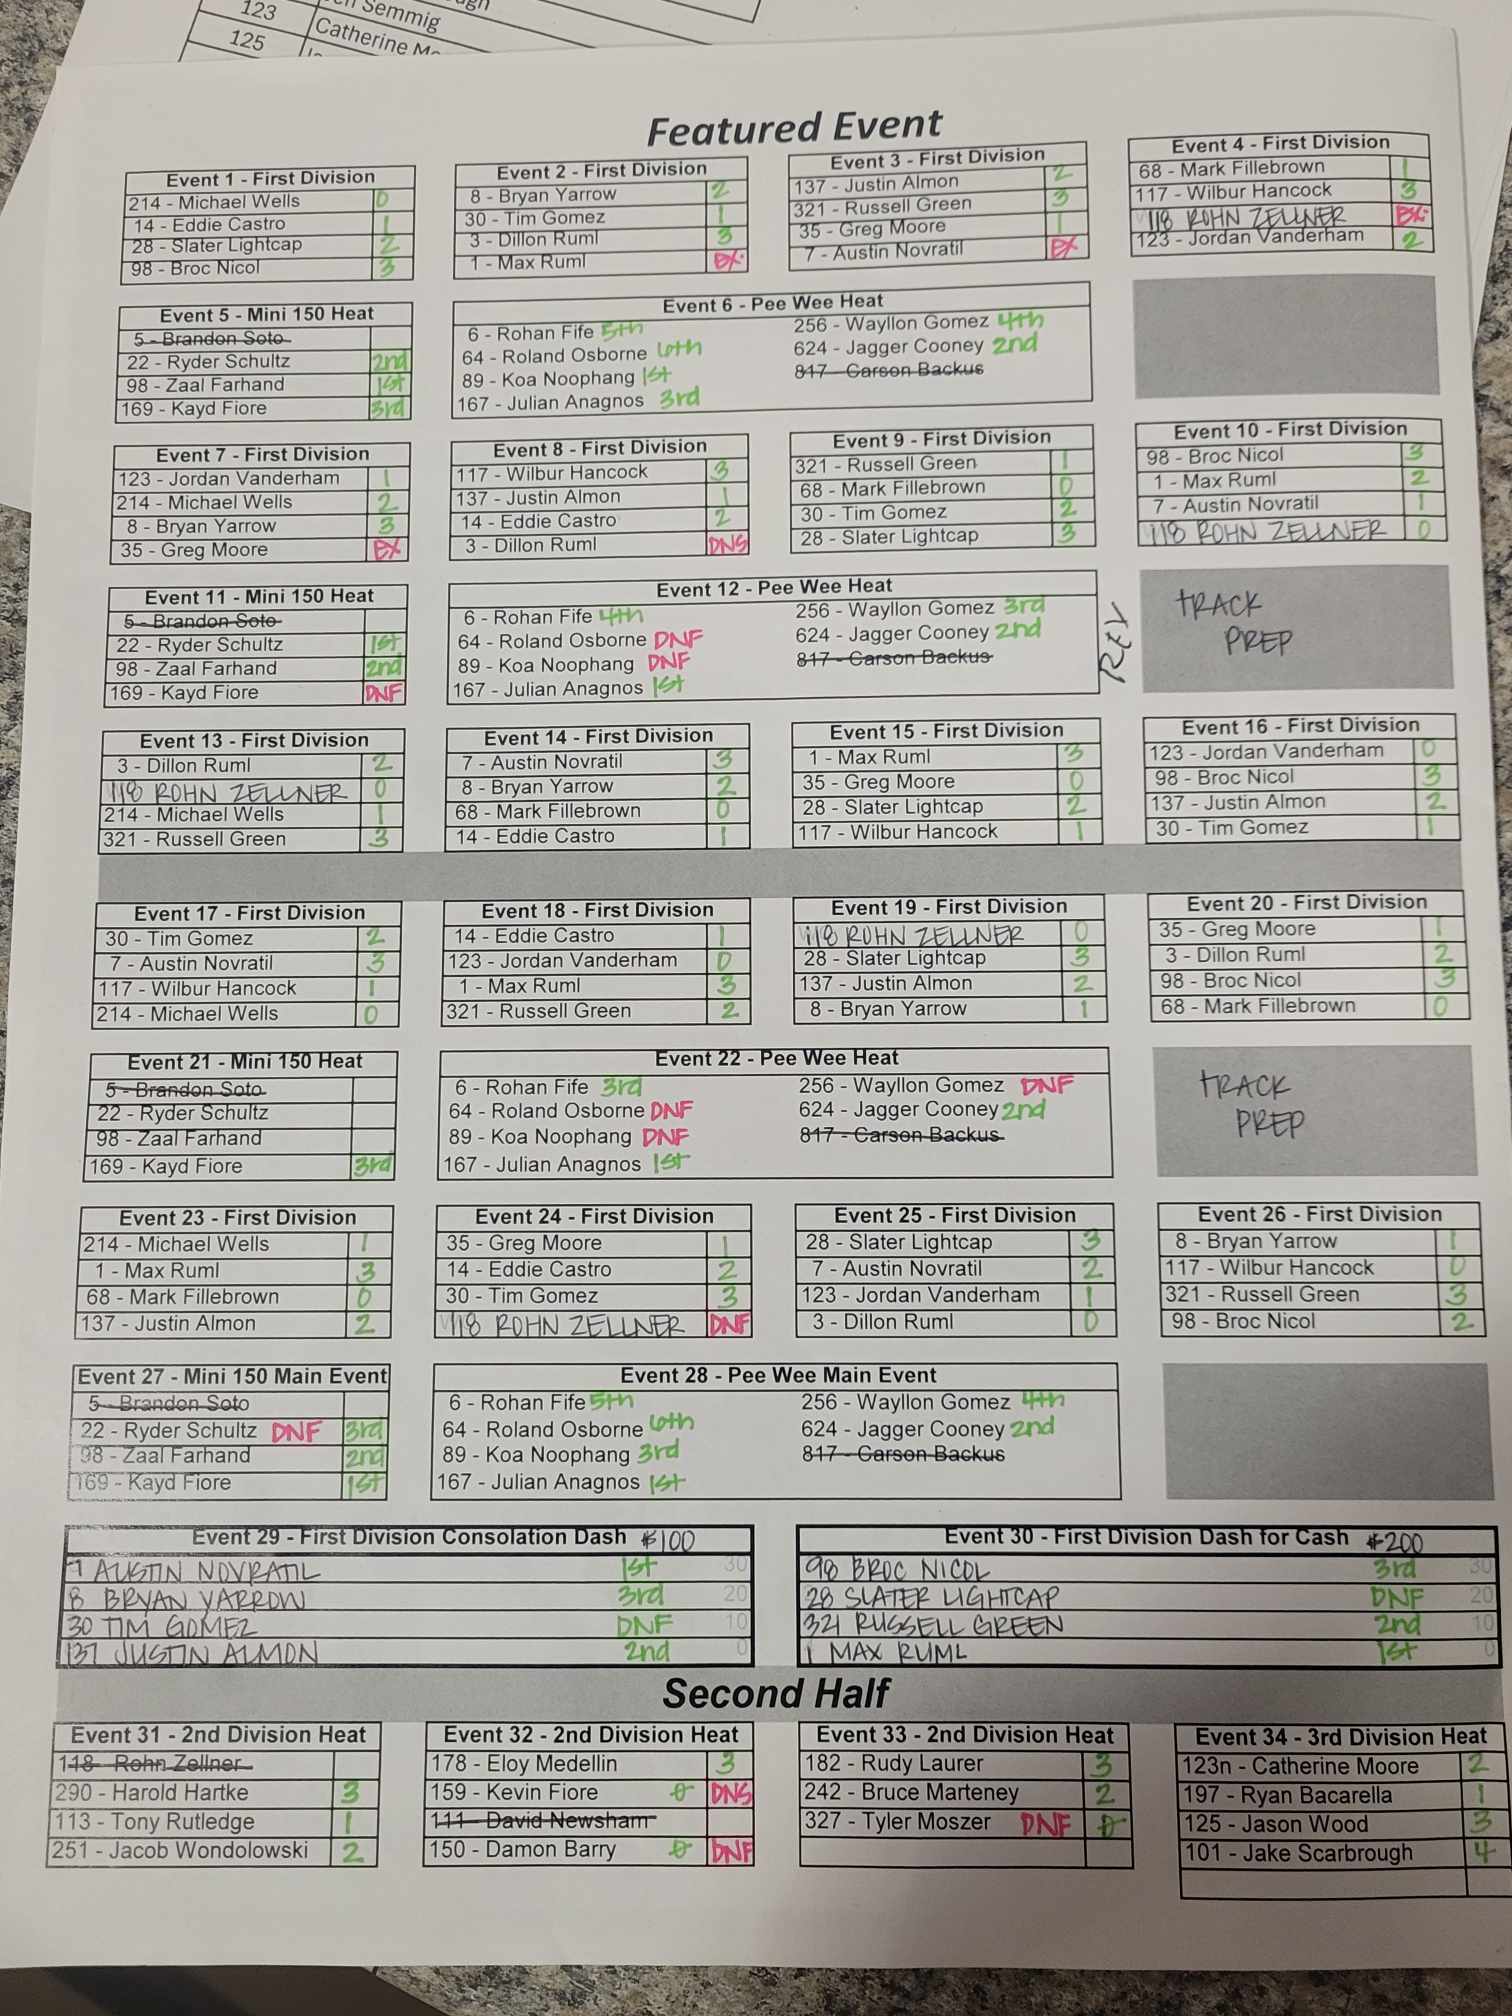 123
Semmig
125
Catherine
Featured Event
Event 1 - First Division
214 - Michael Wells 0
14 - Eddie Castro 1
28 - Slater Lightcap 2
98 - Broc Nicol 3
Event 2 - First Division
8 - Bryan Yarrow 2
30 - Tim Gomez 1
3 - Dillon Ruml 3
1 - Max Ruml EX.
Event 3 - First Division
137 - Justin Almon 2
321 - Russell Green 3
35 - Greg Moore 1
7 - Austin Novratil EX
Event 4 - First Division
68 - Mark Fillebrown 1
117 - Wilbur Hancock 3
118 ROHN ZELLNER EX.
123 - Jordan Vanderham 2
Event 5 - Mini 150 Heat
5 - Brandon Soto
22 - Ryder Schultz 2nd
98 - Zaal Farhand 1st
169 - Kayd Fiore 3rd
Event 6 - Pee Wee Heat
6 - Rohan Fife 5th
64 - Roland Osborne 6th
89 - Koa Noophang 1st
167 - Julian Anagnos 3rd
256 - Wayllon Gomez 4th
624 - Jagger Cooney 2nd
817 - Carson Backus
Event 7 - First Division
123 - Jordan Vanderham 1
214 - Michael Wells 2
8 - Bryan Yarrow 3
35 - Greg Moore EX
Event 8 - First Division
117 - Wilbur Hancock 3
137 - Justin Almon 1
14 - Eddie Castro 2
3 - Dillon Ruml DNS
Event 9 - First Division
321 - Russell Green 1
68 - Mark Fillebrown 0
30 - Tim Gomez 2
28 - Slater Lightcap 3
Event 10 - First Division
98 - Broc Nicol 3
1 - Max Ruml 2
7 - Austin Novratil 1
118 ROHN ZELLNER 0
Event 11 - Mini 150 Heat
5 - Brandon Soto
22 - Ryder Schultz 1st
98 - Zaal Farhand 2nd
169 - Kayd Fiore DNF
Event 12 - Pee Wee Heat
6 - Rohan Fife 4th
64 - Roland Osborne DNF
89 - Koa Noophang DNF
167 - Julian Anagnos 1st
256 - Wayllon Gomez 3rd
624 - Jagger Cooney 2nd
817 - Carson Backus
TRACK
PREP
Event 13 - First Division
3 - Dillon Ruml 2
118 ROHN ZELLNER 0
214 - Michael Wells 1
321 - Russell Green 3
Event 14 - First Division
7 - Austin Novratil 3
8 - Bryan Yarrow 2
68 - Mark Fillebrown 0
14 - Eddie Castro 1
Event 15 - First Division
1 - Max Ruml 3
35 - Greg Moore 0
28 - Slater Lightcap 2
117 - Wilbur Hancock 1
Event 16 - First Division
123 - Jordan Vanderham 0
98 - Broc Nicol 3
137 - Justin Almon 2
30 - Tim Gomez 1
Event 17 - First Division
30 - Tim Gomez 2
7 - Austin Novratil 3
117 - Wilbur Hancock 1
214 - Michael Wells 0
Event 18 - First Division
14 - Eddie Castro 1
123 - Jordan Vanderham 0
1 - Max Ruml 3
321 - Russell Green 2
Event 19 - First Division
118 ROHN ZELLNER 0
28 - Slater Lightcap 3
137 - Justin Almon 2
8 - Bryan Yarrow 1
Event 20 - First Division
35 - Greg Moore 1
3 - Dillon Ruml 2
98 - Broc Nicol 3
68 - Mark Fillebrown 0
Event 21 - Mini 150 Heat
5 - Brandon Soto
22 - Ryder Schultz
98 - Zaal Farhand
169 - Kayd Fiore 3rd
Event 22 - Pee Wee Heat
6 - Rohan Fife 3rd
64 - Roland Osborne DNF
89 - Koa Noophang DNF
167 - Julian Anagnos 1st
256 - Wayllon Gomez DNF
624 - Jagger Cooney 2nd
817 - Carson Backus
TRACK
PREP
Event 23 - First Division
214 - Michael Wells 1
1 - Max Ruml 3
68 - Mark Fillebrown 0
137 - Justin Almon 2
Event 24 - First Division
35 - Greg Moore 1
14 - Eddie Castro 2
30 - Tim Gomez 3
118 ROHN ZELLNER DNF
Event 25 - First Division
28 - Slater Lightcap 3
7 - Austin Novratil 2
123 - Jordan Vanderham 1
3 - Dillon Ruml 0
Event 26 - First Division
8 - Bryan Yarrow 1
117 - Wilbur Hancock 0
321 - Russell Green 3
98 - Broc Nicol 2
Event 27 - Mini 150 Main Event
5 - Brandon Soto
22 - Ryder Schultz DNF 3rd
98 - Zaal Farhand 2nd
169 - Kayd Fiore 1st
Event 28 - Pee Wee Main Event
6 - Rohan Fife 5th
64 - Roland Osborne 6th
89 - Koa Noophang 3rd
167 - Julian Anagnos 1st
256 - Wayllon Gomez 4th
624 - Jagger Cooney 2nd
817 - Carson Backus
Event 29 - First Division Consolation Dash $100
7 AUSTIN NOVRATIL 1st 30
8 BRYAN YARROW 3rd 20
30 TIM GOMEZ DNF 10
137 JUSTIN ALMON 2nd 0
Event 30 - First Division Dash for Cash $200
98 BROC NICOL 3rd 30
28 SLATER LIGHTCAP DNF 20
321 RUSSELL GREEN 2nd 10
1 MAX RUML 1st 0
Second Half
Event 31 - 2nd Division Heat
118 - Rohn Zellner
290 - Harold Hartke 3
113 - Tony Rutledge 1
251 - Jacob Wondolowski 2
Event 32 - 2nd Division Heat
178 - Eloy Medellin 3
159 - Kevin Fiore 0 DNS
111 - David Newsham
150 - Damon Barry 0 DNF
Event 33 - 2nd Division Heat
182 - Rudy Laurer 3
242 - Bruce Marteney 2
327 - Tyler Moszer DNF 0
Event 34 - 3rd Division Heat
123n - Catherine Moore 2
197 - Ryan Bacarella 1
125 - Jason Wood 3
101 - Jake Scarbrough 4